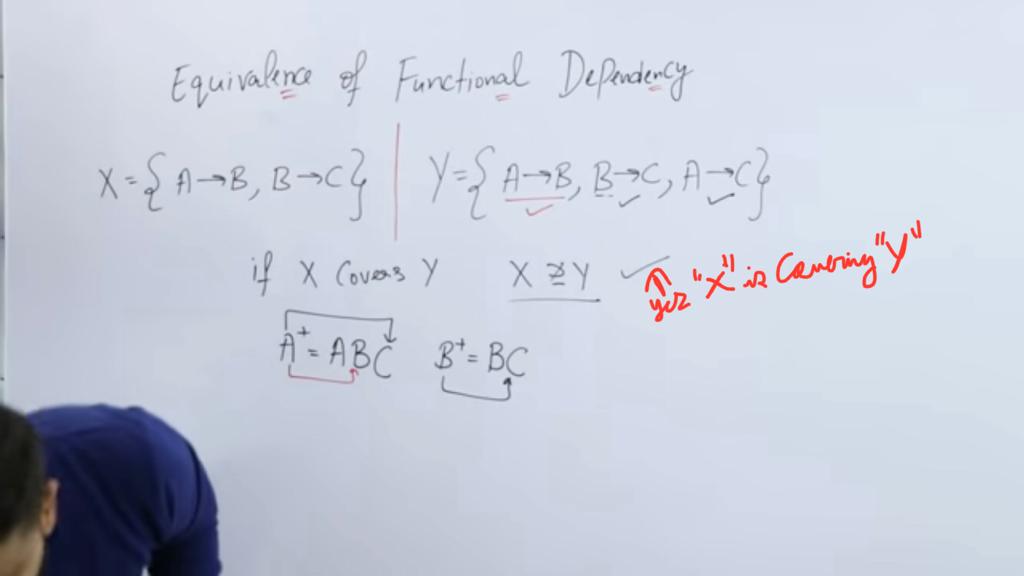 Equivalence of Functional Dependency
X = { A → B, B → C } Y = { A → B, B → C, A → C }
if X Covers Y X ⊇ Y ✓
yes "X" is Covering "Y"
A⁺ = ABC B⁺ = BC